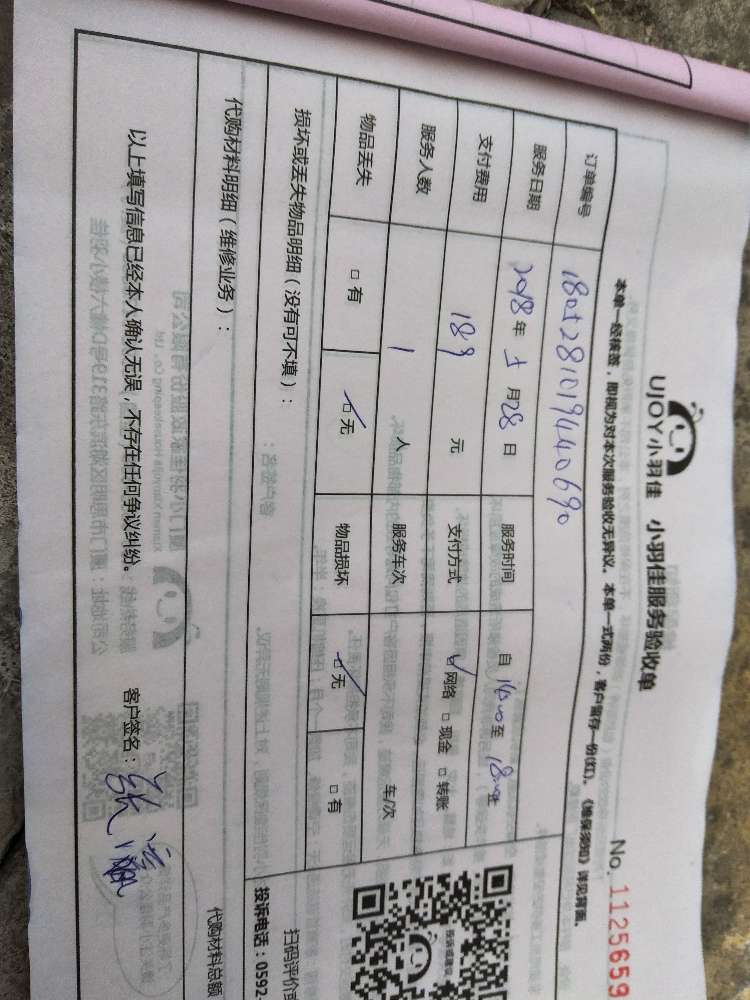 UJOY小羽佳 小羽佳服务验收单
No. 1125659
本单一经核签，即视为对本次服务验收无异议。本单一式两份，客户留存一份(红)。《维保须知》详见背面。
订单编号 1805281019440690
服务日期 2018年5月28日 服务时间 自14:00至18:00
支付费用 189元 支付方式 ☑网络 □现金 □转账
服务人数 1人 服务车次 车/次
物品丢失 □有 ☑无 物品损坏 ☑无 □有
损坏或丢失物品明细（没有可不填）：
扫码评价
投诉电话：0592-
代购材料明细（维修业务）：
代购材料总额
以上填写信息已经本人确认无误，不存在任何争议纠纷。 客户签名：张